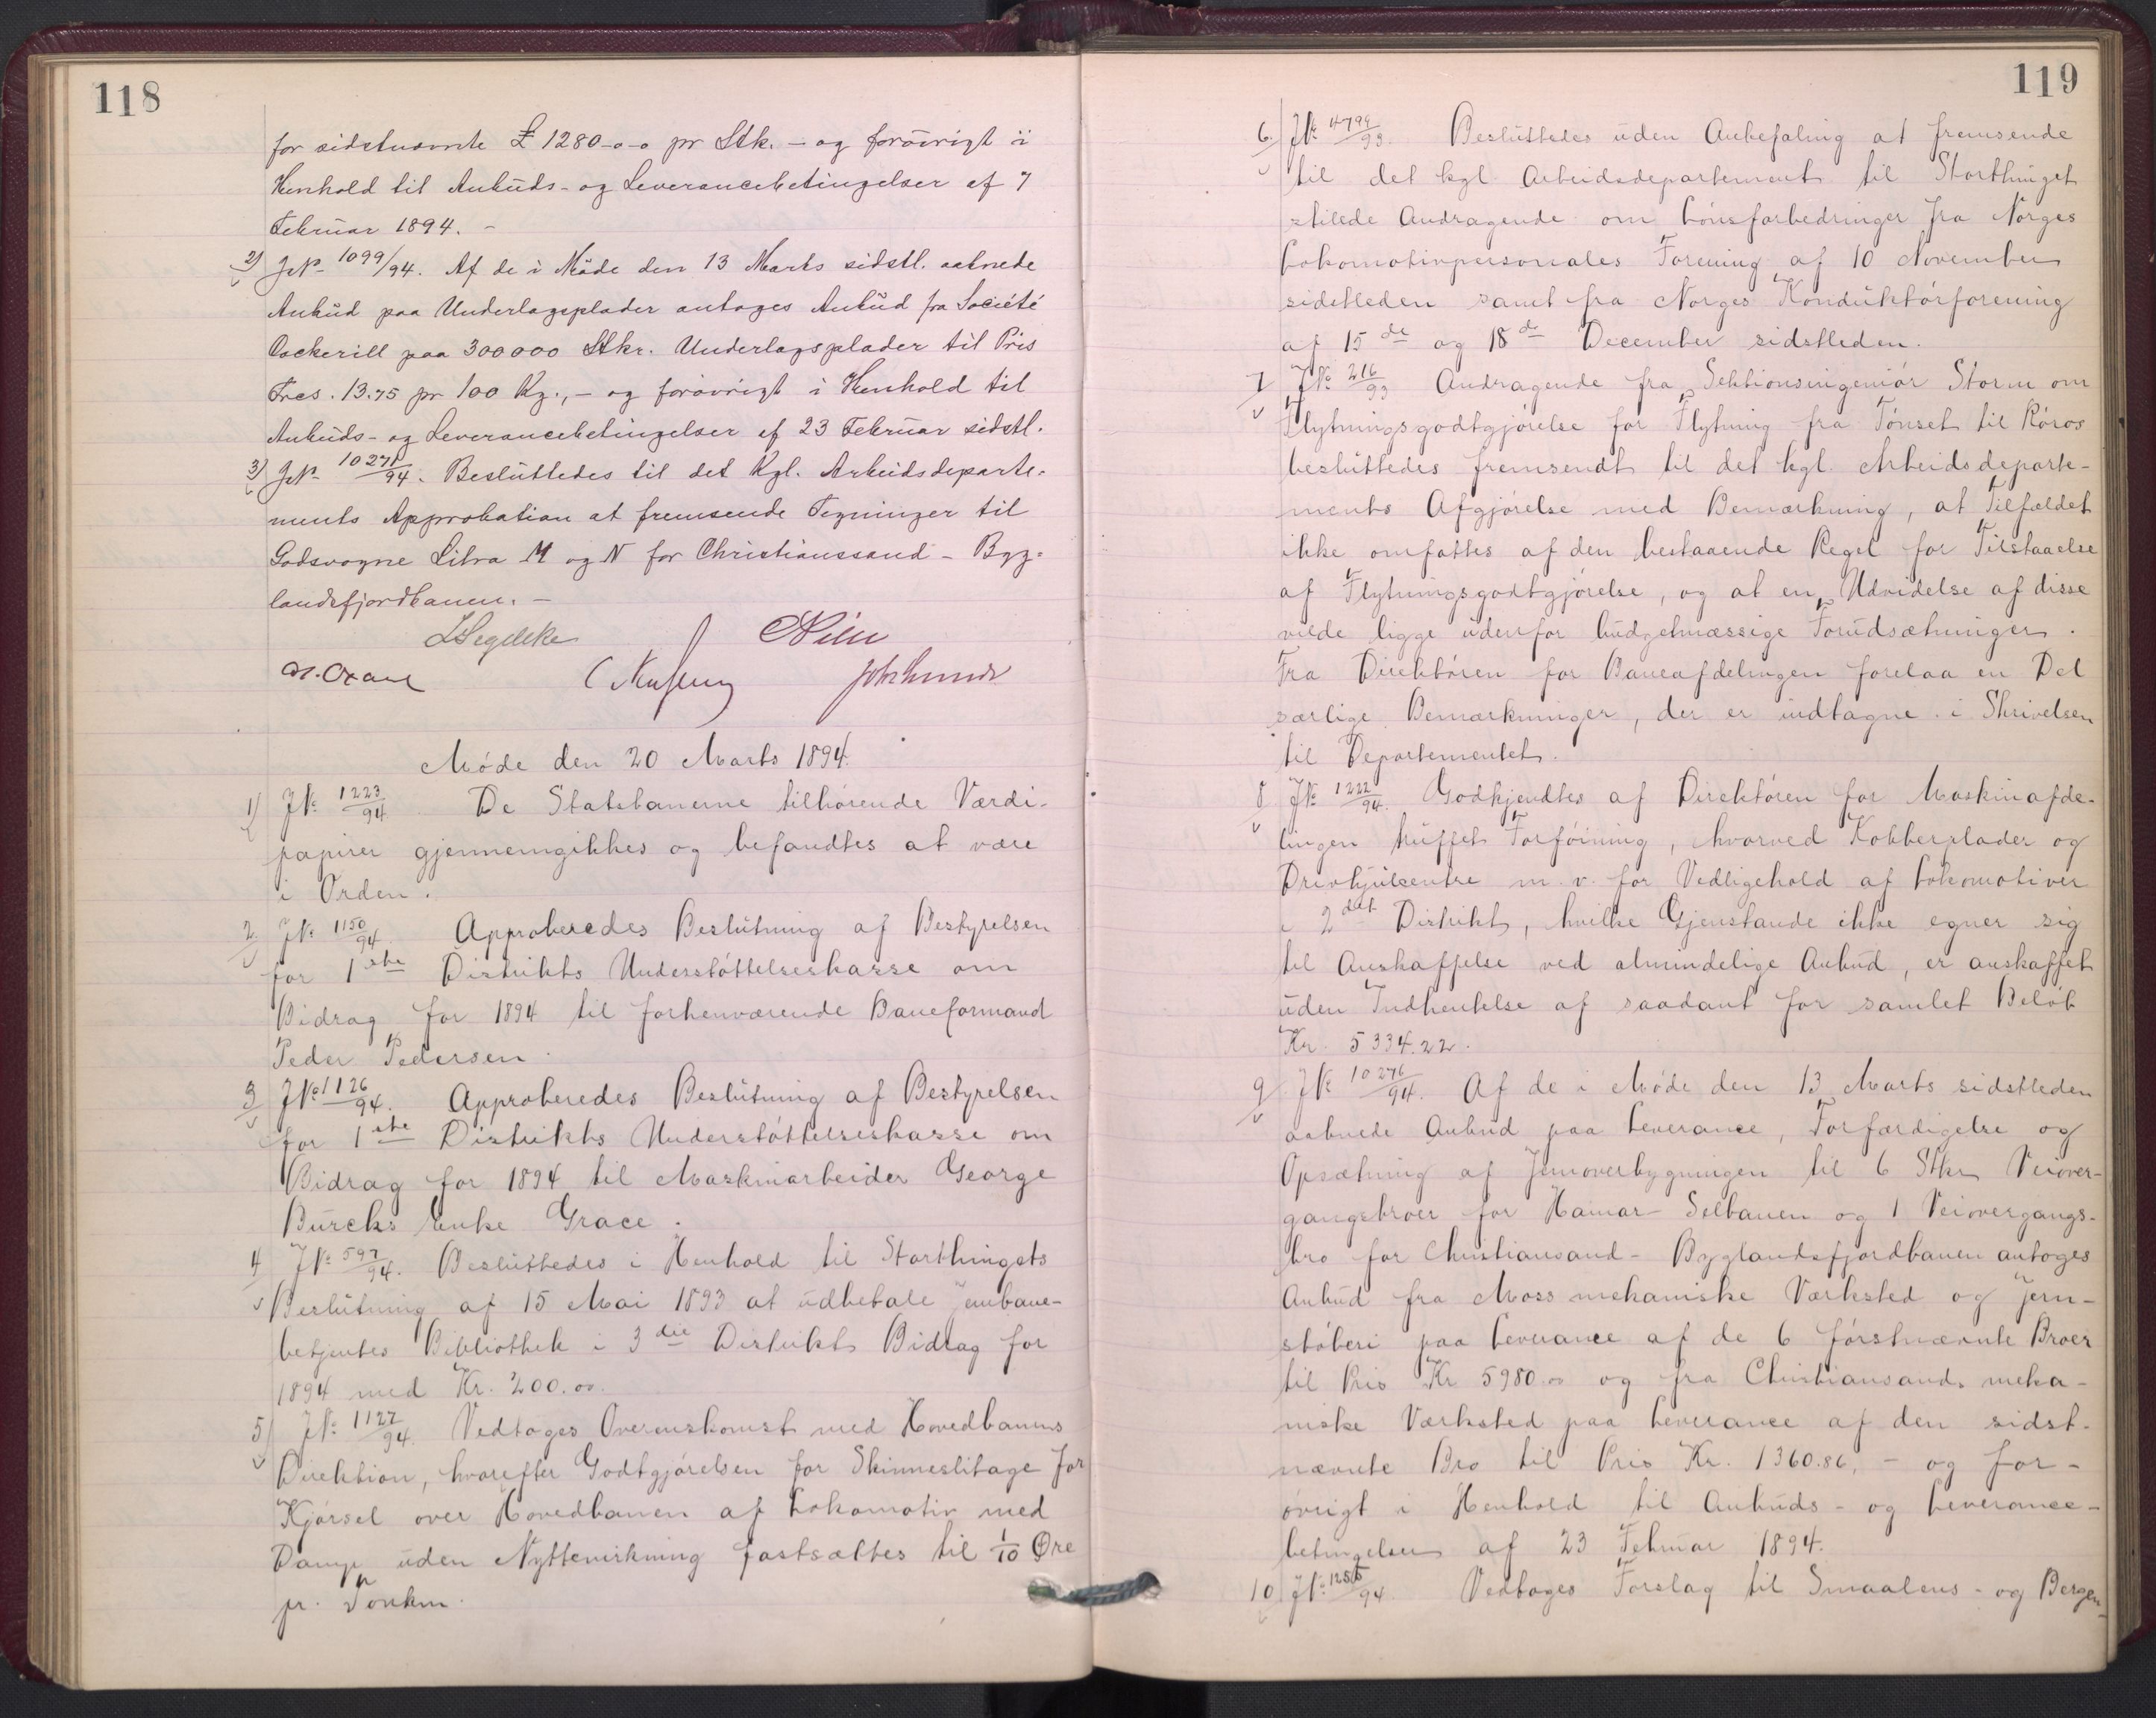 118
for sidstnævnte £ 1280-0-0 pr Stk. - og forövrigt i
Henhold til Anbuds- og Leverancebetingelser af 7
Februar 1894. -
2) JN° 1099/94. Af de i Möde den 13 Marts sidstl. aabnede
Anbud paa Underlagsplader antoges Anbud fra Société
Cockerill paa 300000 Stkr. Underlagsplader til Pris
Frcs. 13.75 pr 100 Kg., - og forövrigt i Henhold til
Anbuds- og Leverancebetingelser af 23 Februar sidstl.
3) JN° 10271/94. Besluttedes til det Kgl. Arbeidsdeparte-
ments Approbation at fremsende Tegninger til
Godsvogne Litra M og N for Christianssand - Byg-
landsfjordbanen. -
Möde den 20 Marts 1894.
1) JN° 1223/94 De Statsbanerne tilhörende Værdi-
papirer gjennemgikkes og befandtes at være
i Orden.
2. JN° 1150/94. Approberedes Beslutning af Bestyrelsen
for 1ste Distrikts Understöttelseskasse om
Bidrag for 1894 til forhenværende Baneformand
Peder Pedersen.
3 JN° 1126/94. Approberedes Beslutning af Bestyrelsen
for 1ste Distrikts Understöttelseskasse om
Bidrag for 1894 til Maskinarbeider George
Burcks Enke Grace.
4 JN° 597/94. Besluttedes i Henhold til Storthingets
Beslutning af 15 Mai 1893 at udbetale Jernbane-
betjentes Bibliothek i 3die Distrikt Bidrag for
1894 med Kr. 200.00.
5) JN° 1127/94. Vedtoges Overenskomst med Hovedbanens
Direktion, hvorefter Godtgjörelsen for Skinneslitage for
Kjörsel over Hovedbanen af Lokomotiv med
Damp uden Nyttevirkning fastsættes til 1/10 Øre
pr. Tonkm.
119
6. JN° 4794/93. Besluttedes uden Anbefaling at fremsende
til det kgl. Arbeidsdepartement til Storthinget
stilede Andragende om Lönsforbedringer fra Norges
Lokomotivpersonales Forening af 10 November
sidstleden samt fra Norges Konduktörforening
af 15de og 18de December sidstleden.
7 JN° 216/93 Andragende fra Sektionsingeniör Storm om
Flytningsgodtgjörelse for Flytning fra Tönset til Röros
besluttedes fremsendt til det kgl. Arbeidsdeparte-
ments Afgjörelse med Bemærkning, at Tilfældet
ikke omfattes af den bestaaende Regel for Tilstaaelse
af Flytningsgodtgjörelse, og at en Udvidelse af disse
vilde ligge udenfor budgetmæssige Forudsætninger.
Fra Direktören for Baneafdelingen forelaa en Del
særlige Bemærkninger, der er indtagne i Skrivelsen
til Departementet.
8 JN° 1222/94. Godkjendtes af Direktören for Maskinafde-
lingen truffet Forföining, hvorved Kobberplader og
Drivhjulcentre m. v. for Vedligehold af Lokomotiver
i 2det Distrikt, hvilke Gjenstande ikke egner sig
til Anskaffelse ved almindelige Anbud, er anskaffet
uden Indhentelse af saadant for samlet Belöb
Kr. 5334.22.
9 JN° 10276/94. Af de i Möde den 13 Marts sidstleden
aabnede Anbud paa Leverance, Forfærdigelse og
Opsætning af Jernoverbygningen til 6 Stkr Veiover-
gangsbroer for Hamar-Selbanen og 1 Veiovergangs-
bro for Christiansand - Byglandsfjordbanen antoges
Anbud fra Moss mekaniske Værksted og Jern-
stöberi paa Leverance af de 6 förstnævnte Broer
til Pris Kr 5980.00 og fra Christiansands meka-
niske Værksted paa Leverance af den sidst-
nævnte Bro til Pris Kr. 1360.86, - og for-
övrigt i Henhold til Anbuds- og Leverance-
betingelser af 23 Februar 1894.
10 JN° /94 Vedtoges Forslag til Smaalens- og Bergen-